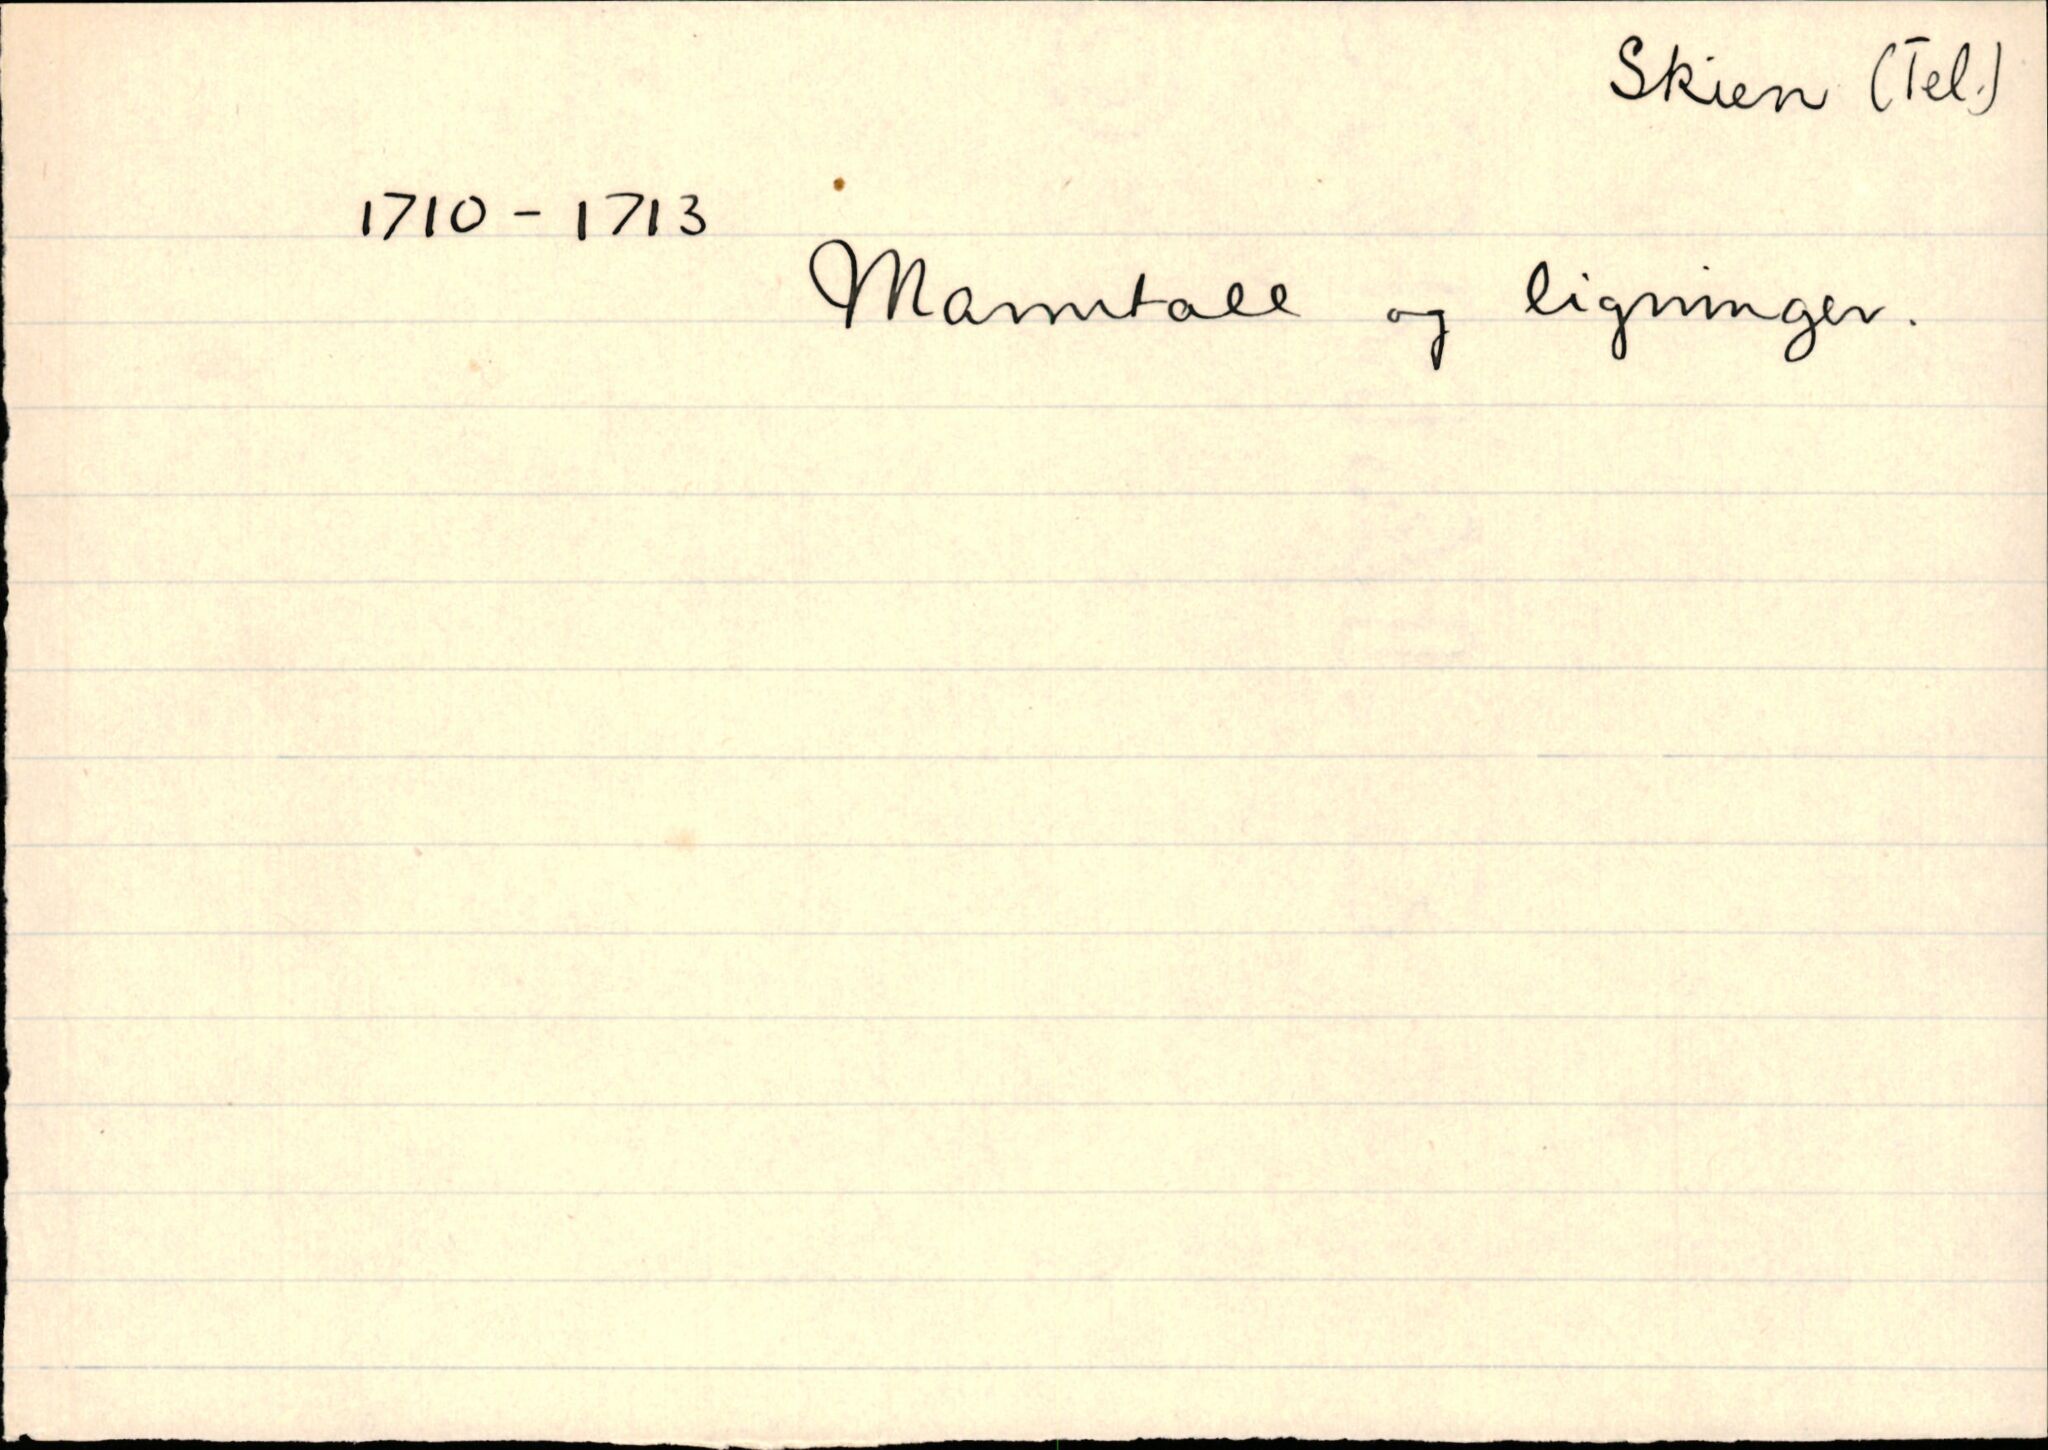 Skien (Tel.)
1710 - 1713
Manntall og ligninger.